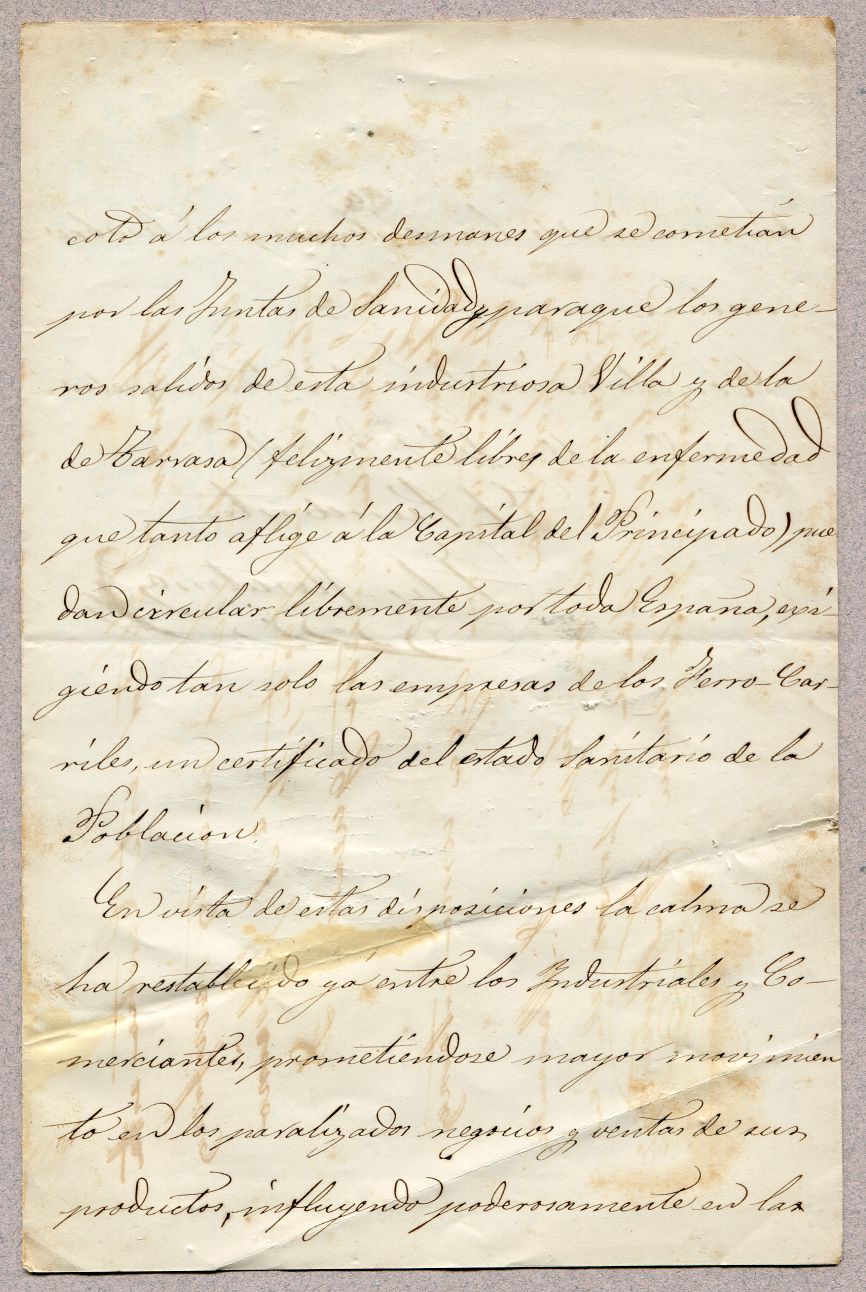 coto á los muchos desmanes que se cometian
por las Juntas de Sanidad y paraque los gene-
ros salidos de esta industriosa Villa y de la
de Tarrasa (felizmente libres de la enfermedad
que tanto aflige á la Capital del Principado) pue
dan circular libremente por toda España, exi-
giendo tan solo las empresas de los Ferro-Car-
riles, un certificado del estado Sanitario de la
Poblacion.
En vista de estas disposiciones la calma se
ha restablecido yá entre los Industriales y Co-
merciantes, prometiéndose mayor movimien
to en los paralizados negocios y ventas de sus
productos, influyendo poderosamente en las